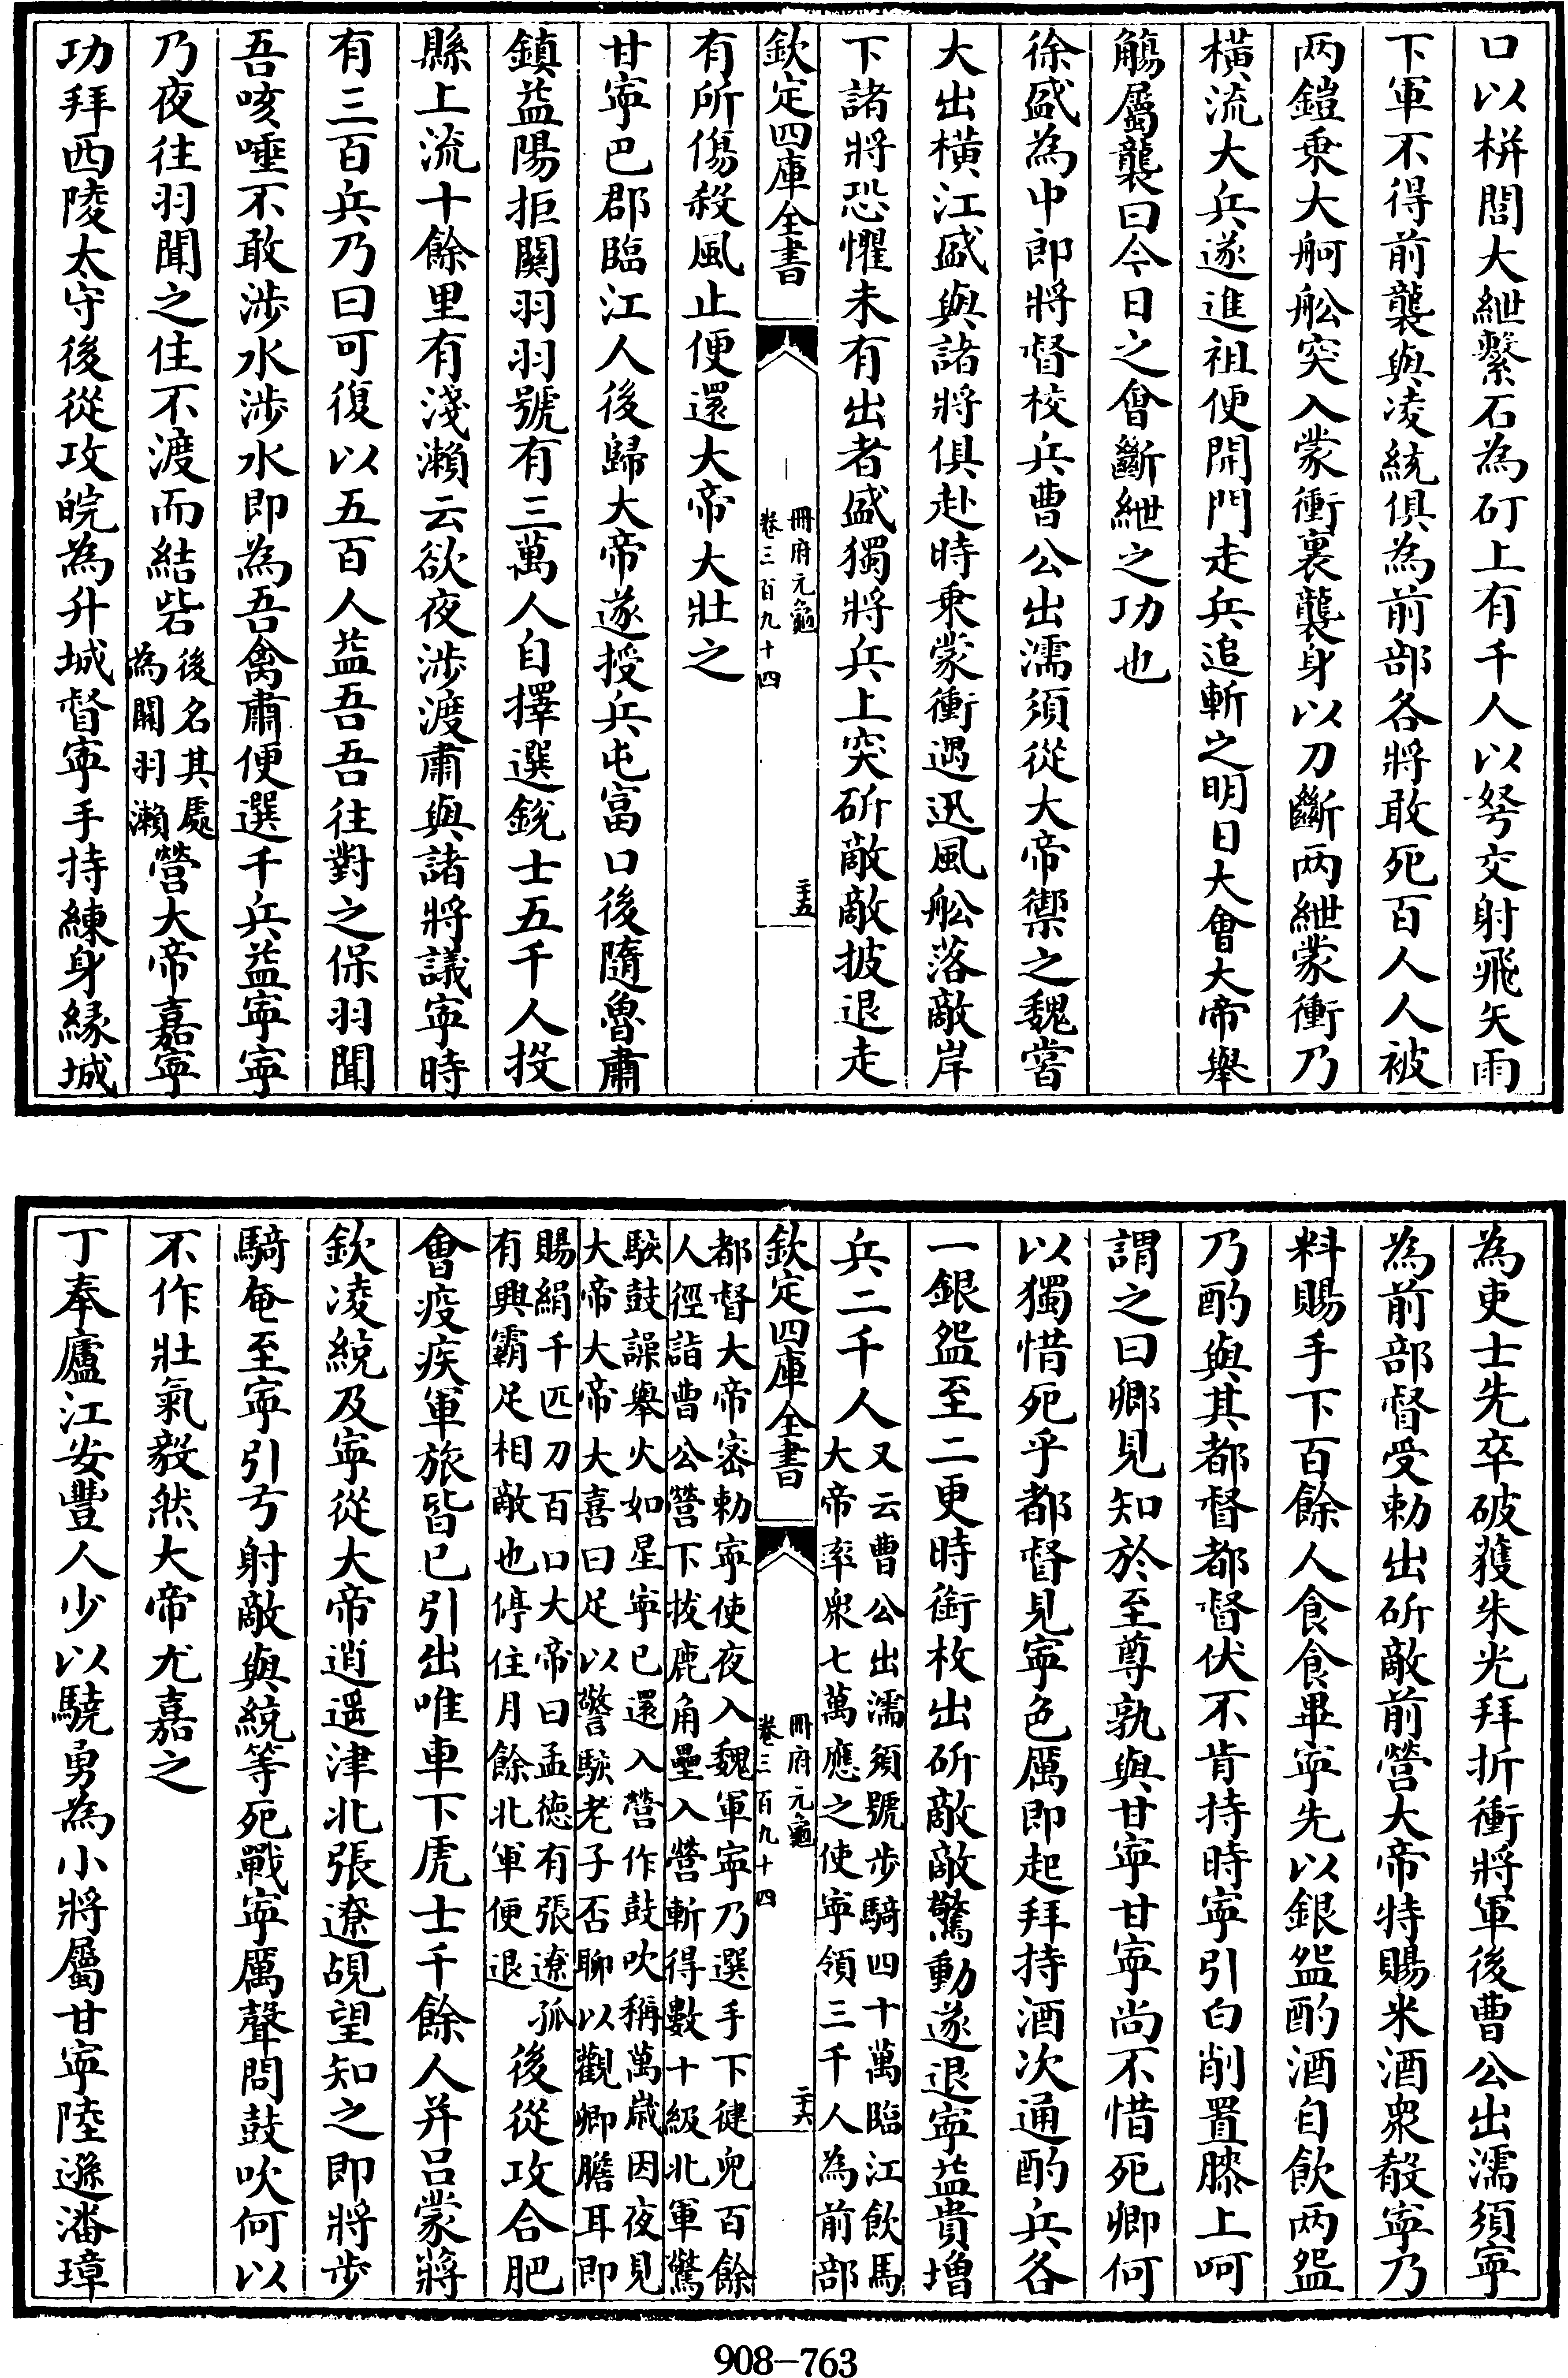 口以栟閭大紲繫石為矴上有千人以弩交射飛矢雨
下軍不得前襲與凌統俱為前部各將敢死百人人被
两鎧乗大舸舩突入蒙衝裏襲身以刀斷两紲蒙衝乃
橫流大兵遂進祖便開門走兵追斬之明日大㑹大帝舉
觴屬襲曰今日之㑹斷紲之功也
徐盛為中郎將督校兵曹公出濡須從大帝禦之魏嘗
大出橫江盛與諸將俱赴時乗蒙衝遇迅風舩落敵岸
下諸將恐懼未有出者盛獨將兵上突斫敵敵披退走
欽定四庫全書
冊府元龜
卷三百九十四
二十五
有所傷殺風止便還大帝大壯之
甘寧巴郡臨江人後歸大帝遂授兵屯富口後隨魯肅
鎮益陽拒闗羽羽號有三萬人自擇選鋭士五千人投
縣上流十餘里有淺瀨云欲夜涉渡肅與諸將議寧時
有三百兵乃曰可復以五百人益吾吾往對之保羽聞
吾咳唾不敢涉水涉水即為吾禽肅便選千兵益寧寧
乃夜往羽聞之住不渡而結砦後名其處為關羽瀨營大帝嘉寧
功拜西陵太守後從攻皖為升城督寧手持練身緣城
為吏士先卒破獲朱光拜折衝將軍後曹公出濡須寧
為前部督受勅出斫敵前營大帝特賜米酒衆殽寧乃
料賜手下百餘人食食畢寧先以銀盌酌酒自飲两盌
乃酌與其都督都督伏不肯持時寧引白削置膝上呵
謂之曰卿見知於至尊孰與甘寧甘寧尚不惜死卿何
以獨惜死乎都督見寧色厲即起拜持酒次通酌兵各
一銀盌至二更時銜枚出斫敵敵驚動遂退寧益貴增
兵二千人又云曹公出濡須號步騎四十萬臨江飲馬大帝率衆七萬應之使寧領三千人為前部
欽定四庫全書
冊府元龜
卷三百九十四
二十六
都督大帝密勅寧使夜入魏軍寧乃選手下健兒百餘人徑詣曹公營下拔鹿角壘入營斬得數十級北軍驚
駭鼓譟舉火如星寧已還入營作鼓吹稱萬歲因夜見大帝大帝大喜曰足以驚駭老子否聊以觀卿膽耳即
賜絹千匹刀百口大帝曰孟德有張遼孤有興霸足相敵也停住月餘北軍便退後從攻合肥
㑹疫疾軍旅皆已引出唯車下虎士千餘人并吕蒙蔣
欽凌統及寧從大帝逍遥津北張遼覘望知之即將步
騎奄至寧引弓射敵與統等死戰寧厲聲問鼓吹何以
不作壯氣毅然大帝尤嘉之
丁奉廬江安豐人少以驍勇為小將屬甘寧陸遜潘璋
908－763